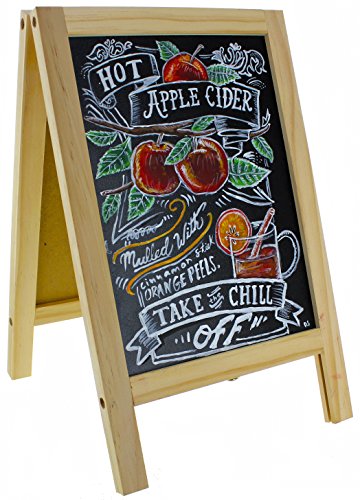 HOT
APPLE CIDER
Mulled With
cinnamon stix
ORANGE PEELS.
TAKE THE CHILL
"OFF"